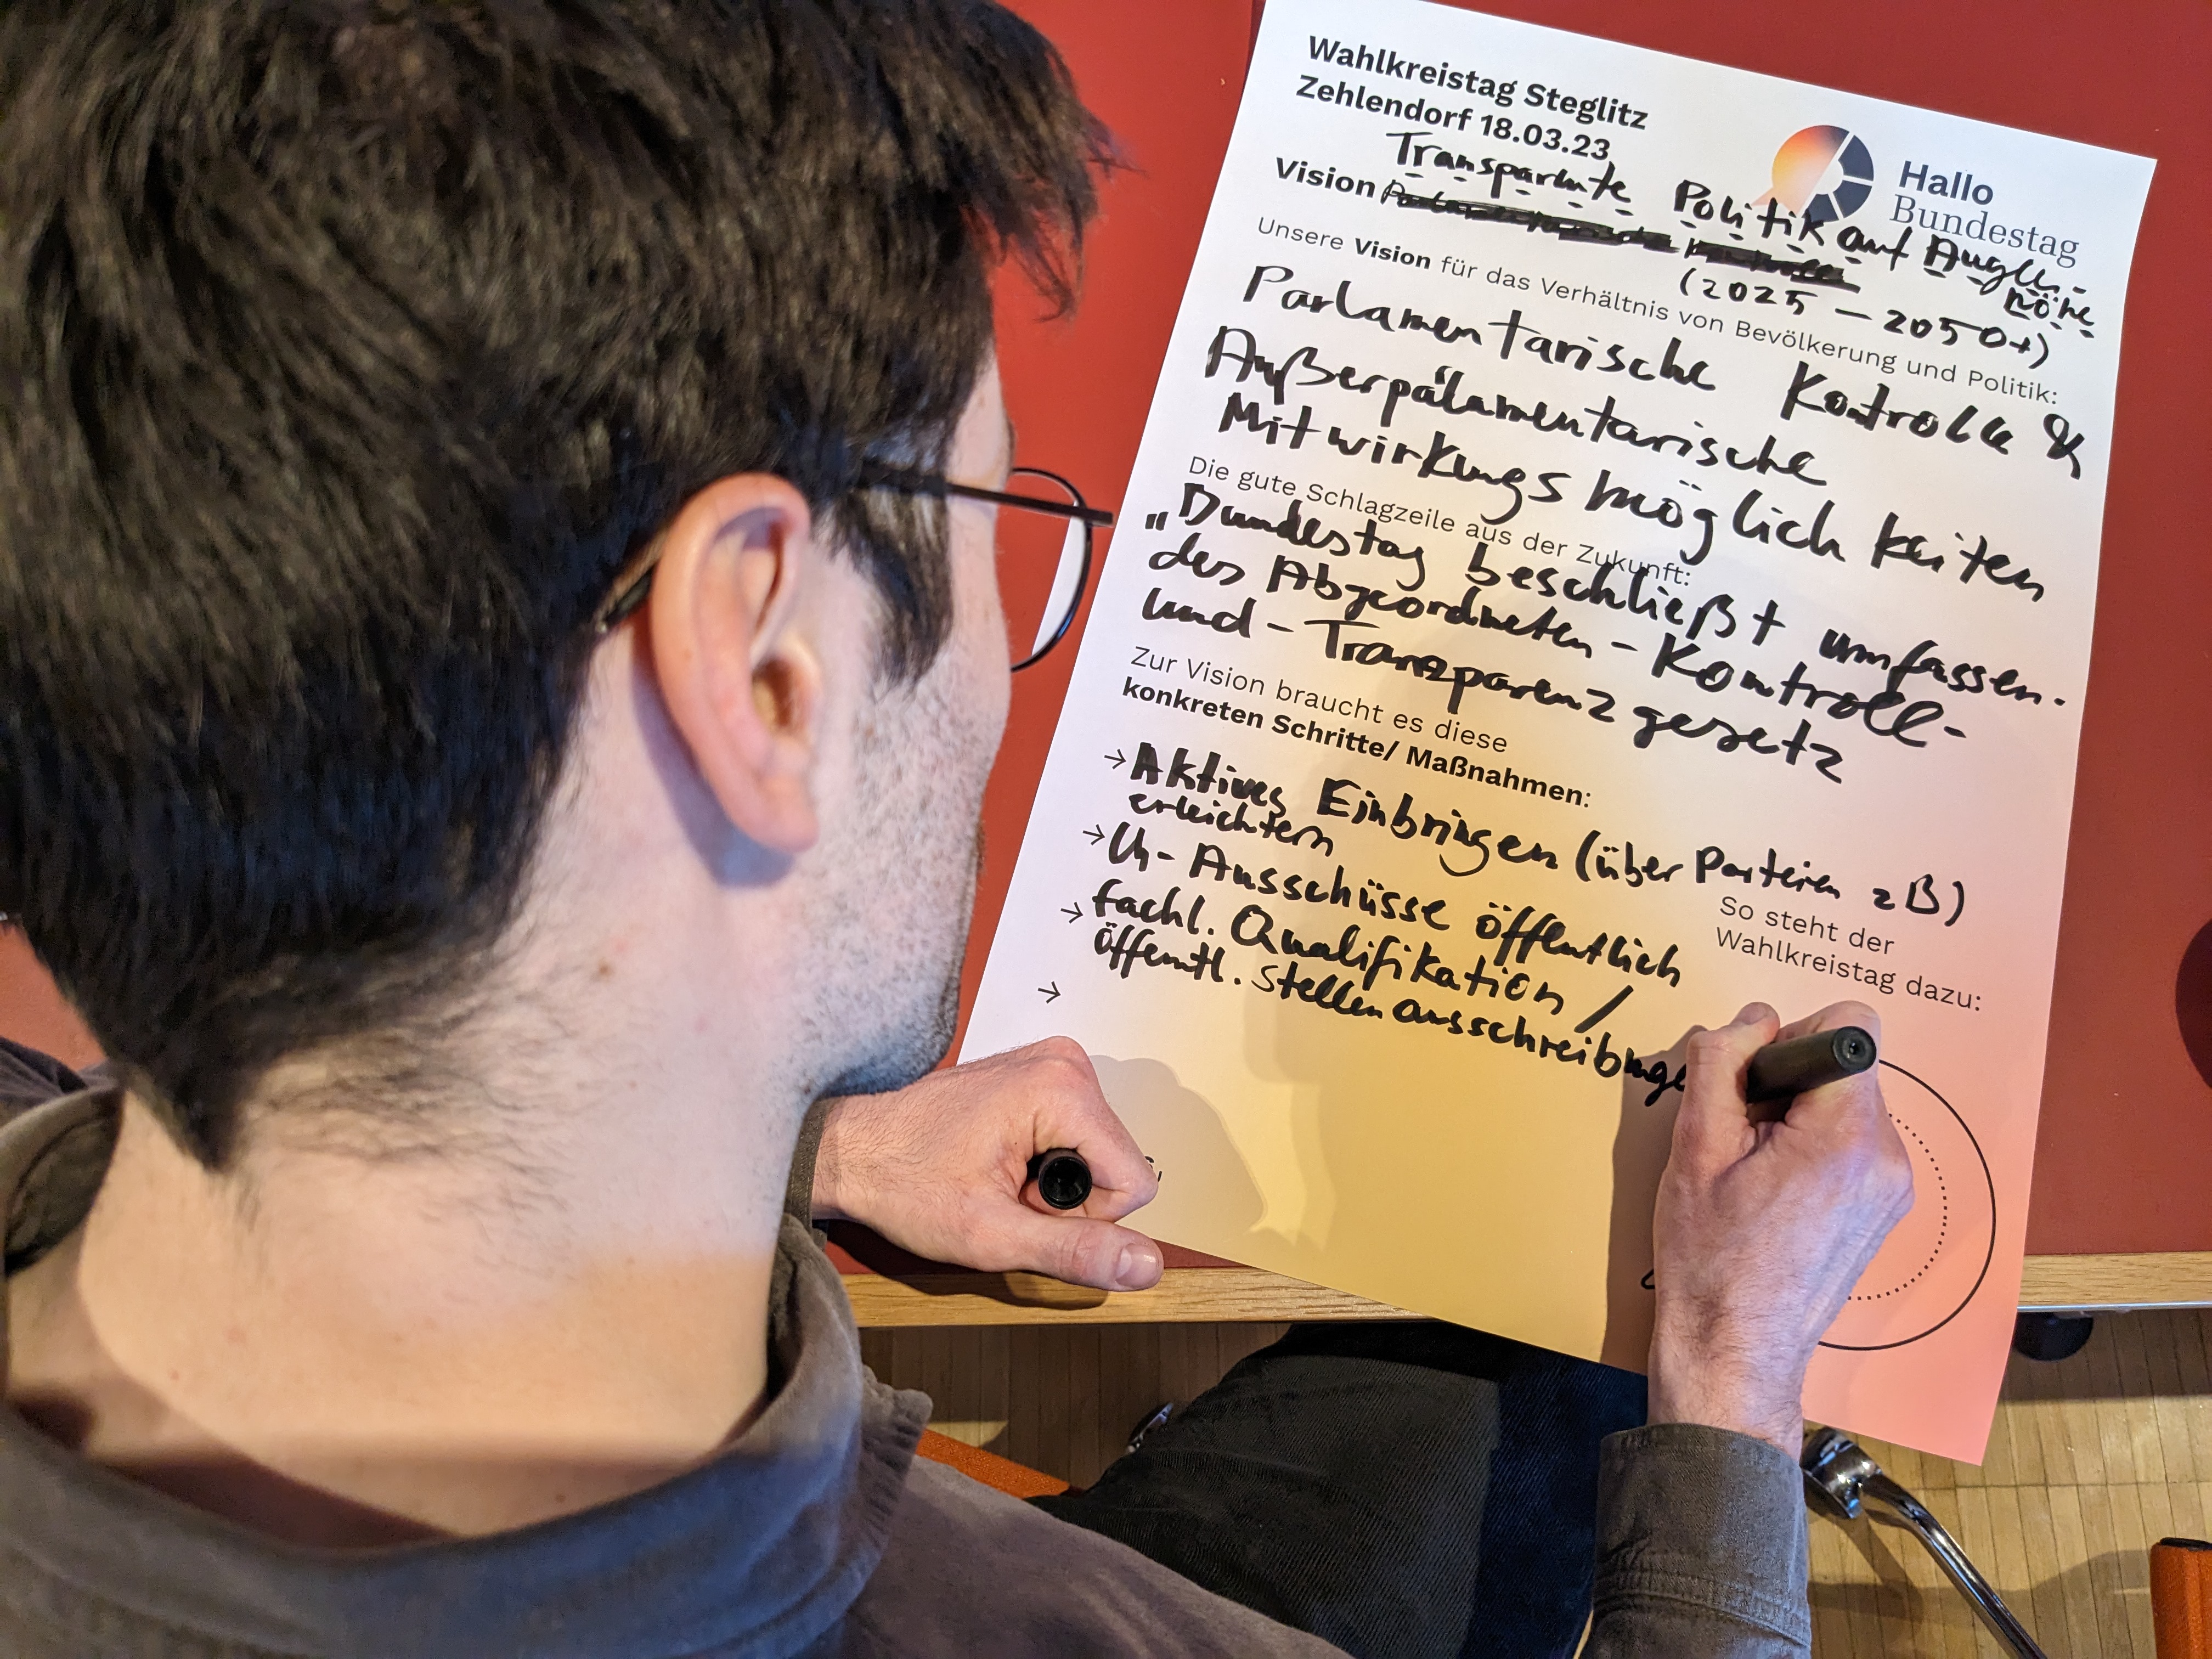 Wahlkreistag Steglitz
Zehlendorf 18.03.23
Hallo
Bundestag
Transparente Politik auf Augen-
höhe
Vision
(2025 – 2050+)
Unsere Vision für das Verhältnis von Bevölkerung und Politik:
Parlamentarische Kontrolle &
Außerpälamentarische
Mitwirkungsmöglichkeiten
Die gute Schlagzeile aus der Zukunft:
„Bundestag beschließt umfassen-
des Abgeordneten-Kontroll-
und-Transparenzgesetz
Zur Vision braucht es diese
konkreten Schritte/ Maßnahmen:
→ Aktives Einbringen (über Parteien zB)
erleichtern
→ U-Ausschüsse öffentlich
→ fachl. Qualifikation /
öffentl. Stellenausschreibunge
→
So steht der
Wahlkreistag dazu: